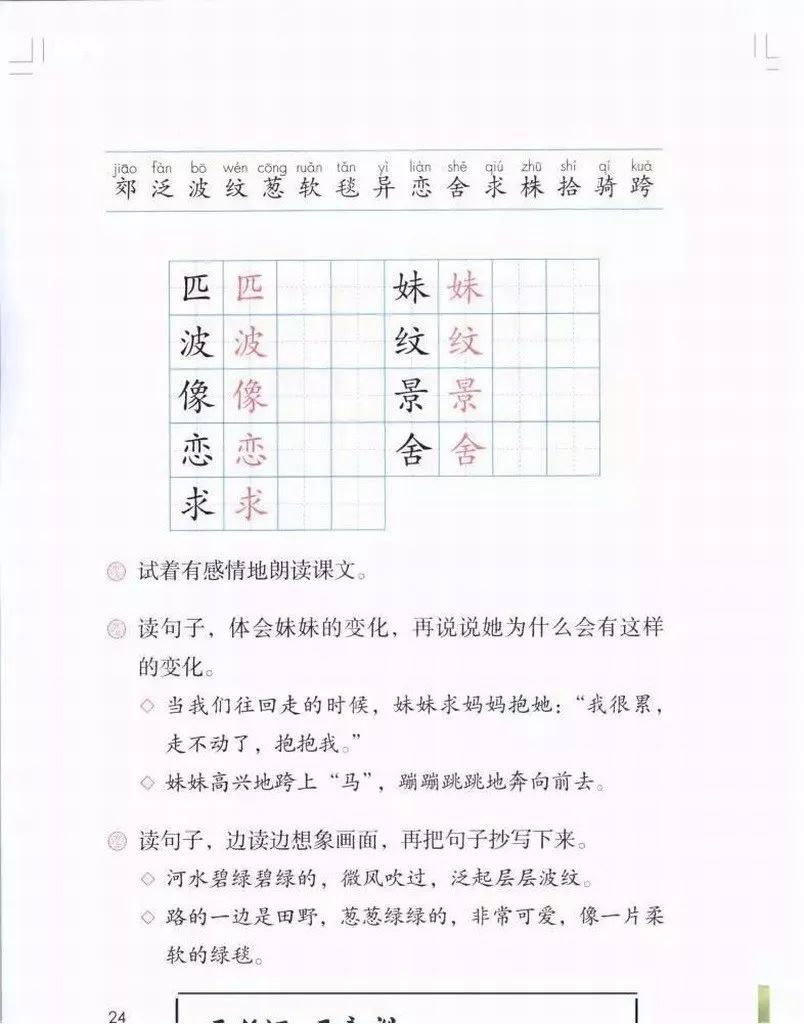 jiāo fàn bō wén cōng ruǎn tǎn yì liàn shě qiú zhū shí qí kuà
郊 泛 波 纹 葱 软 毯 异 恋 舍 求 株 拾 骑 跨
匹 匹 妹 妹
波 波 纹 纹
像 像 景 景
恋 恋 舍 舍
求 求
试着有感情地朗读课文。
读句子，体会妹妹的变化，再说说她为什么会有这样
的变化。
◇ 当我们往回走的时候，妹妹求妈妈抱她：“我很累，
走不动了，抱抱我。”
◇ 妹妹高兴地跨上“马”，蹦蹦跳跳地奔向前去。
读句子，边读边想象画面，再把句子抄写下来。
◇ 河水碧绿碧绿的，微风吹过，泛起层层波纹。
◇ 路的一边是田野，葱葱绿绿的，非常可爱，像一片柔
软的绿毯。
24